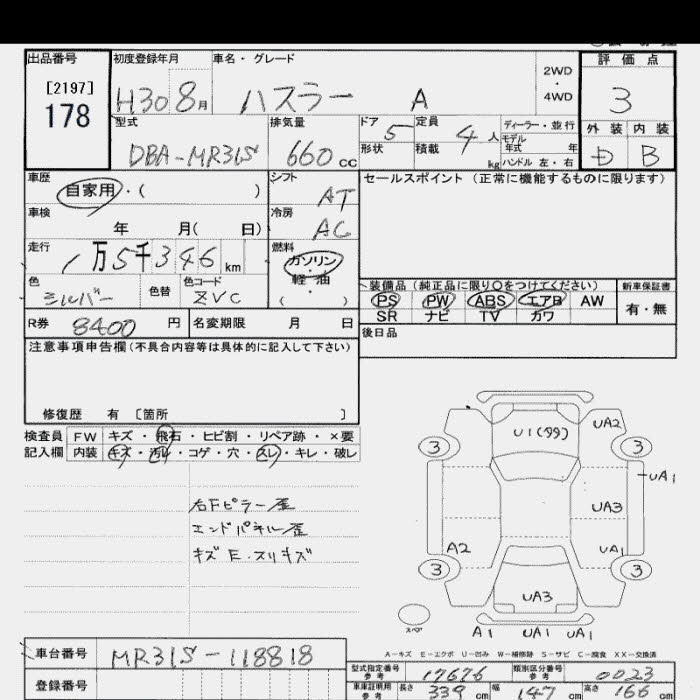 出品番号 初度登録年月 車名・グレード 2WD・4WD 評価点
[2197]
178
H30 8月 ハスラー A 3
型式 排気量 ドア 5 定員 4人 ディーラー・並行 外装 内装
DBA-MR31S 660cc 形状 積載 kg モデル年式 年 ハンドル 左・右 D B
車歴 シフト セールスポイント (正常に機能するものに限ります)
自家用・( ) AT
車検 年 月( 日) 冷房 AC
走行 1万5千346km 燃料 ガソリン・軽油・( )
色 シルバー 色替 色コード ZVC
装備品 (純正品に限り○をつけてください) 新車保証書
PS PW ABS エアB AW 有・無
SR ナビ TV カワ
R券 8400円 名変期限 月 日
後日品
注意事項申告欄(不具合内容等は具体的に記入して下さい)
修復歴 有 [箇所 ]
検査員 FW キズ・飛石・ヒビ割・リペア跡・×要
記入欄 内装 キズ・汚れ・コゲ・穴・スレ・キレ・破レ
右Fピラー歪
エンドパネル歪
キズE.スリキズ
U1(99) UA2
3 3
UA1
UA3
A2 UA1
3 3
UA3
スペア
A1 UA1 UA1
A-キズ E-エクボ U-凹み W-補修跡 S-サビ C-腐食 XX-交換済
車台番号 MR31S-118818
型式指定番号 参考 17676 類別区分番号 参考 0023
登録番号
車庫証明用 参考 長さ 339cm 幅 147cm 高さ 166cm